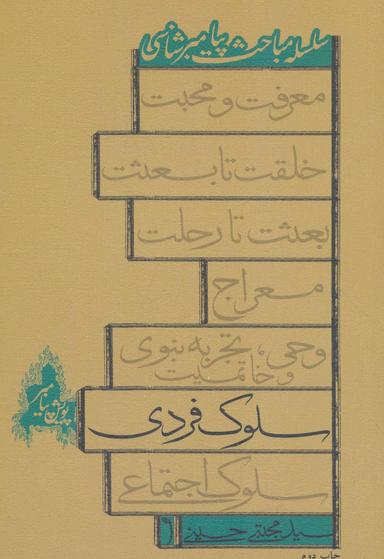 سلسله مباحث پیامبرشناسی
معرفت و محبت
خلقت تا بعثت
بعثت تا رحلت
معراج
وحی، تجربه نبوی
و خاتمیت
سلوک فردی
پویش پیامبر
سلوک اجتماعی
سید مجتبی حسینی
۶
چاپ دوم